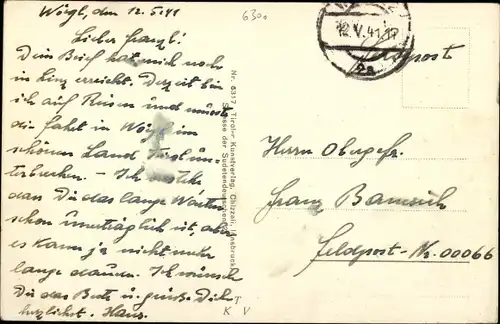 Wörgl, den 12.5.41
Lieber Franzl!
Dein Brief hat mich noch
in Linz erreicht. Derzeit bin
ich auf Reisen und musste
die Fahrt in Wörgl im
schönen Land Tirol un-
terbrechen. - Ich
dass Du das lange Warten
schon unerträglich ist, aber
es kann ja nicht mehr
lange dauern. Ich wünsche
Dir das Beste u. grüsse Dich
herzlichst. Hans.
6300
12.V.41.17
Feldpost
Nr. 6317, Tiroler Kunstverlag, Chizzali, Innsbruck
Strasse der Sudetendeutschen
Herrn Obergefr.
Franz
Feldpost-Nr. 00066
T
K V